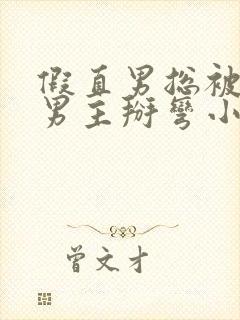 假直男总被
男主掰弯小
曾文才